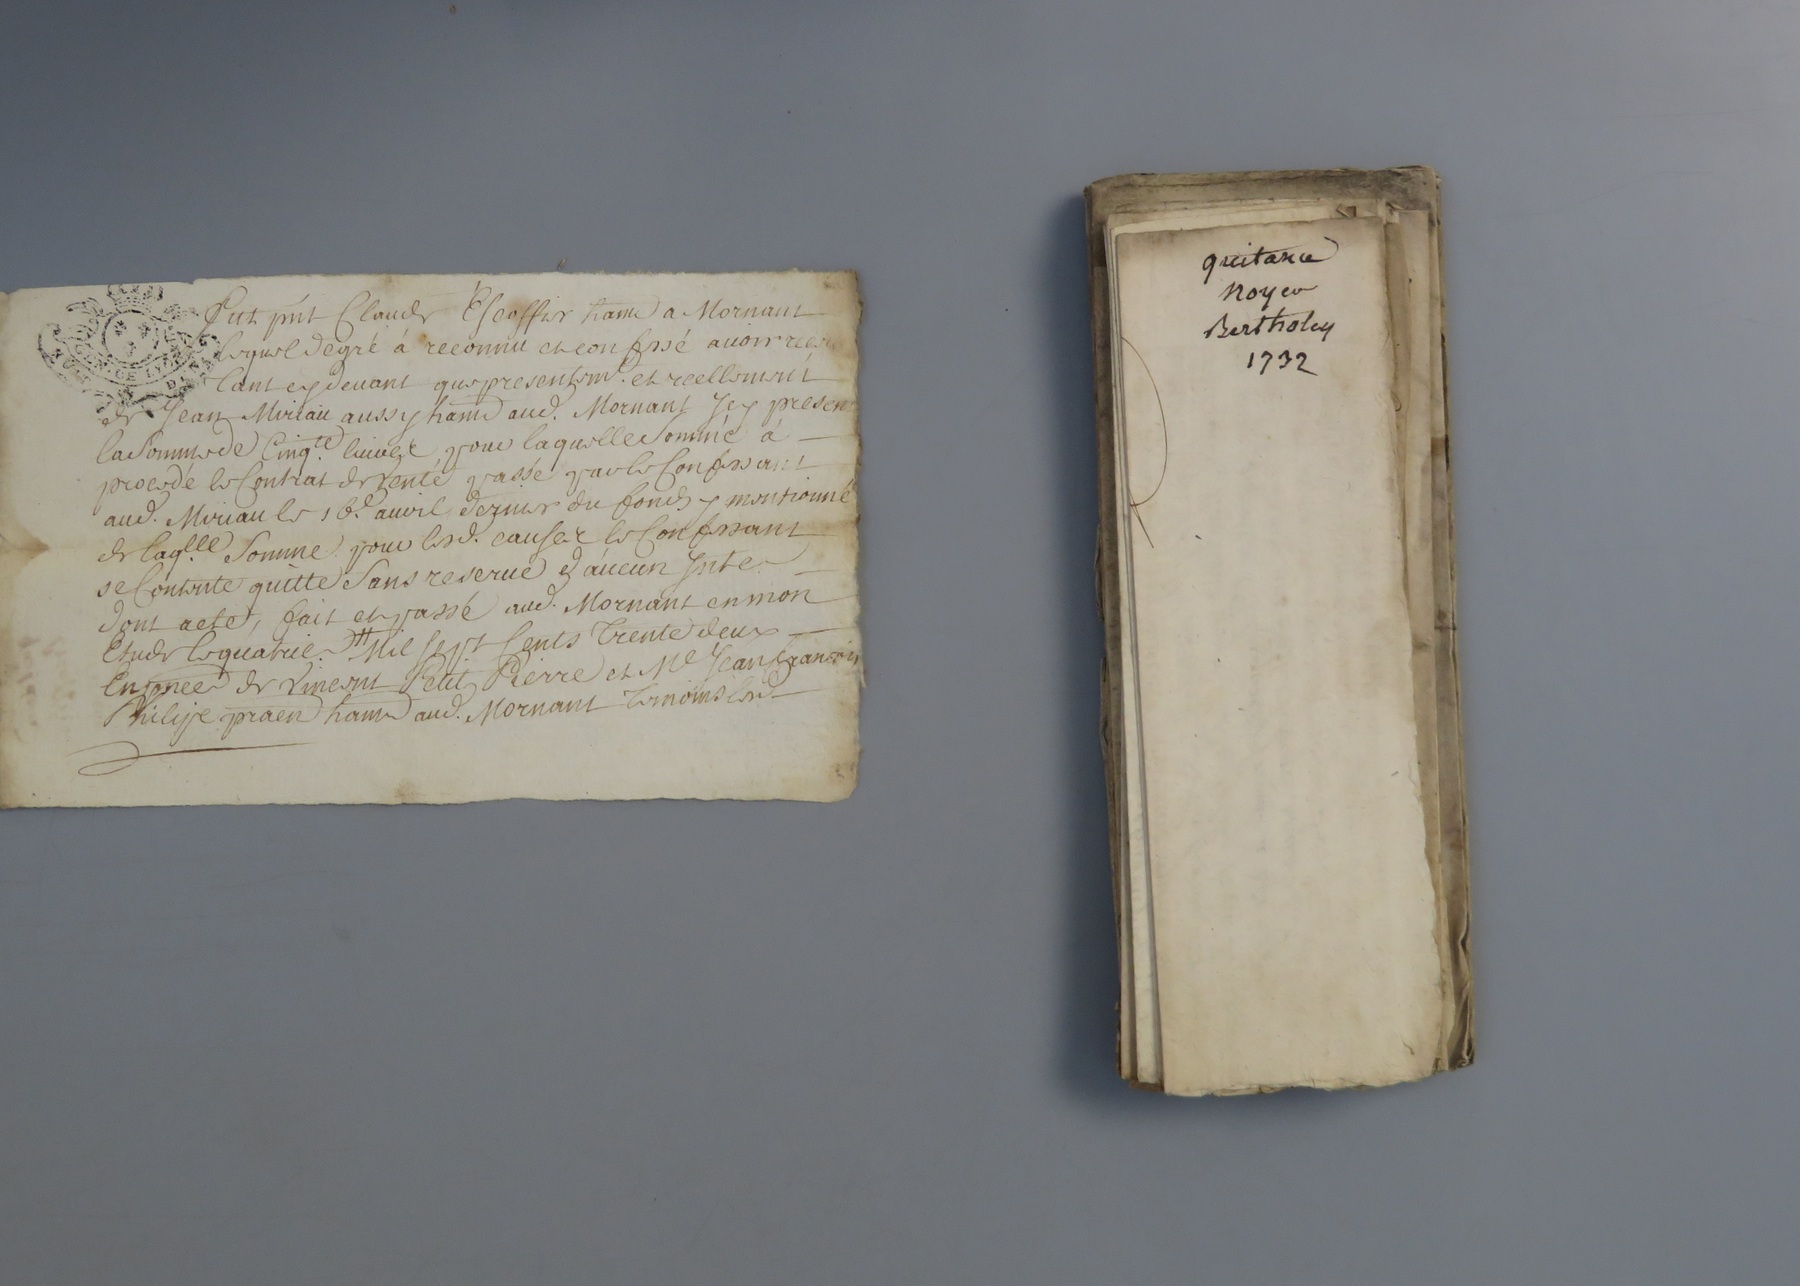 fut pnt Claude Escoffier hant a Mornant
lequel de gré à reconnu et confessé avoir receu
tant cy devant que presentemt. et reellement
de Jean Miriau aussy hant aud. Mornant Icy present
la Somme de Cinqte livres pour laquelle Somme à
procedé le Contrat de vente passé par le Confessant
aud. Miriau le 16e. auvril dernier du fonds y mentionné
de laqlle Somme pour lesd. causes le Confessant
se Contente quitte Sans reserue d'aucun Inte
dont acte, fait et passé aud. Mornant en mon
Etude le quatrie. Mil Sept Cents Trente deux
En pnce de Vincent Petit Pierre et Me Jean françois
Philipe praen hant aud. Mornant Temoins
quitance
Noyer
Bertholey
1732